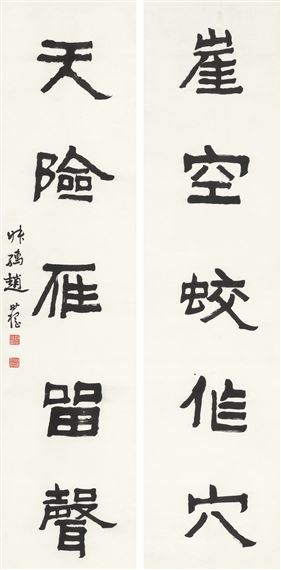 崖空蛟作穴
天險雁留聲
趙